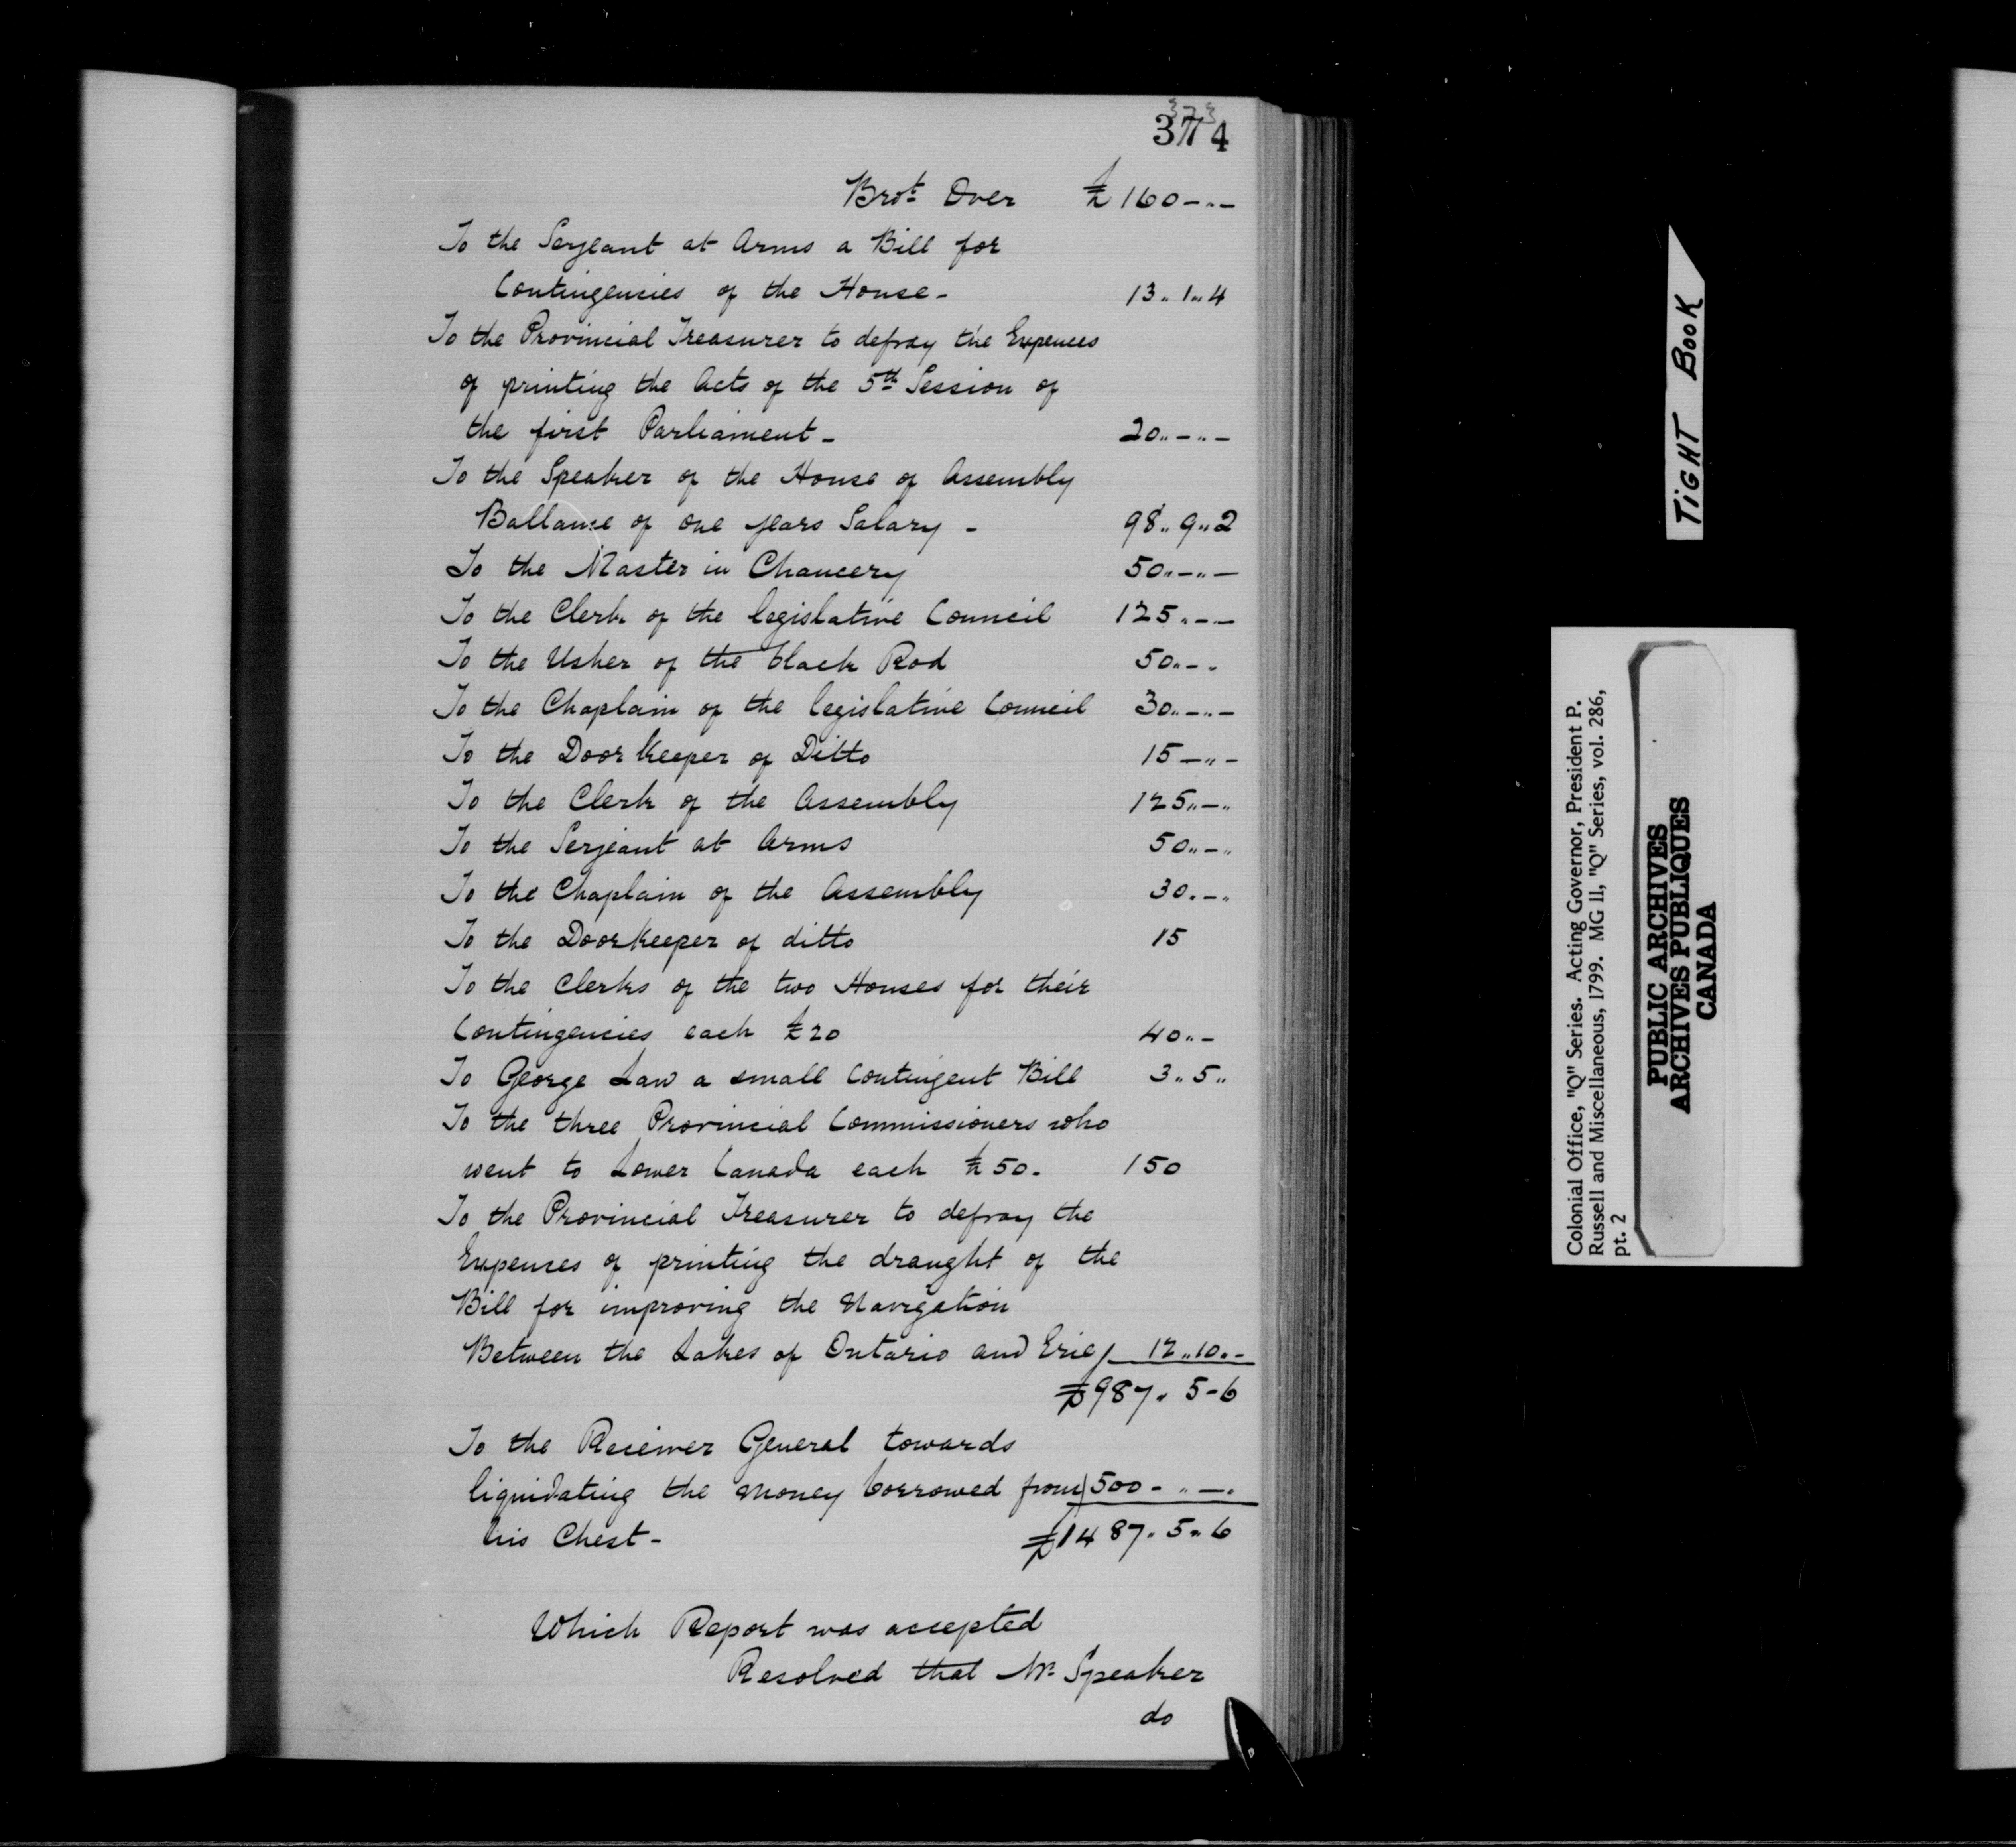 373
374
Brot Over £160-..-
To the Serjeant at Arms a Bill for
Contingencies of the House - 13..1..4
To the Provincial Treasurer to defray the Expences
of printing the Acts of the 5th Session of
the first Parliament - 20..-..-
To the Speaker of the House of Assembly
Ballance of one years Salary - 98..9..2
To the Master in Chancery 50..-..-
To the Clerk of the legislative Council 125..-..-
To the Usher of the black Rod 50..-..
To the Chaplain of the legislative Council 30..-..-
To the Door Keeper of Ditto 15-..-
To the Clerk of the Assembly 125..-..
To the Serjeant at Arms 50..-..
To the Chaplain of the Assembly 30.-..
To the Doorkeeper of ditto 15
To the Clerks of the two Houses for their
Contingencies each £20 40..-
To George Law a small Contingent Bill 3..5..
To the three Provincial Commissioners who
went to Lower Canada each £50. 150
To the Provincial Treasurer to defray the
Expenses of printing the draught of the
Bill for improving the Navigation
Between the Lakes of Ontario and Erie 12..10.-
£987. 5-6
To the Receiver General towards
liquidating the money borrowed from 500-..-.
his Chest - £1487.5..6
Which Report was accepted
Resolved that Mr Speaker
do
TIGHT BOOK
Colonial Office, "Q" Series. Acting Governor, President P.
Russell and Miscellaneous, 1799. MG 11, "Q" Series, vol. 286,
pt. 2
PUBLIC ARCHIVES
ARCHIVES PUBLIQUES
CANADA